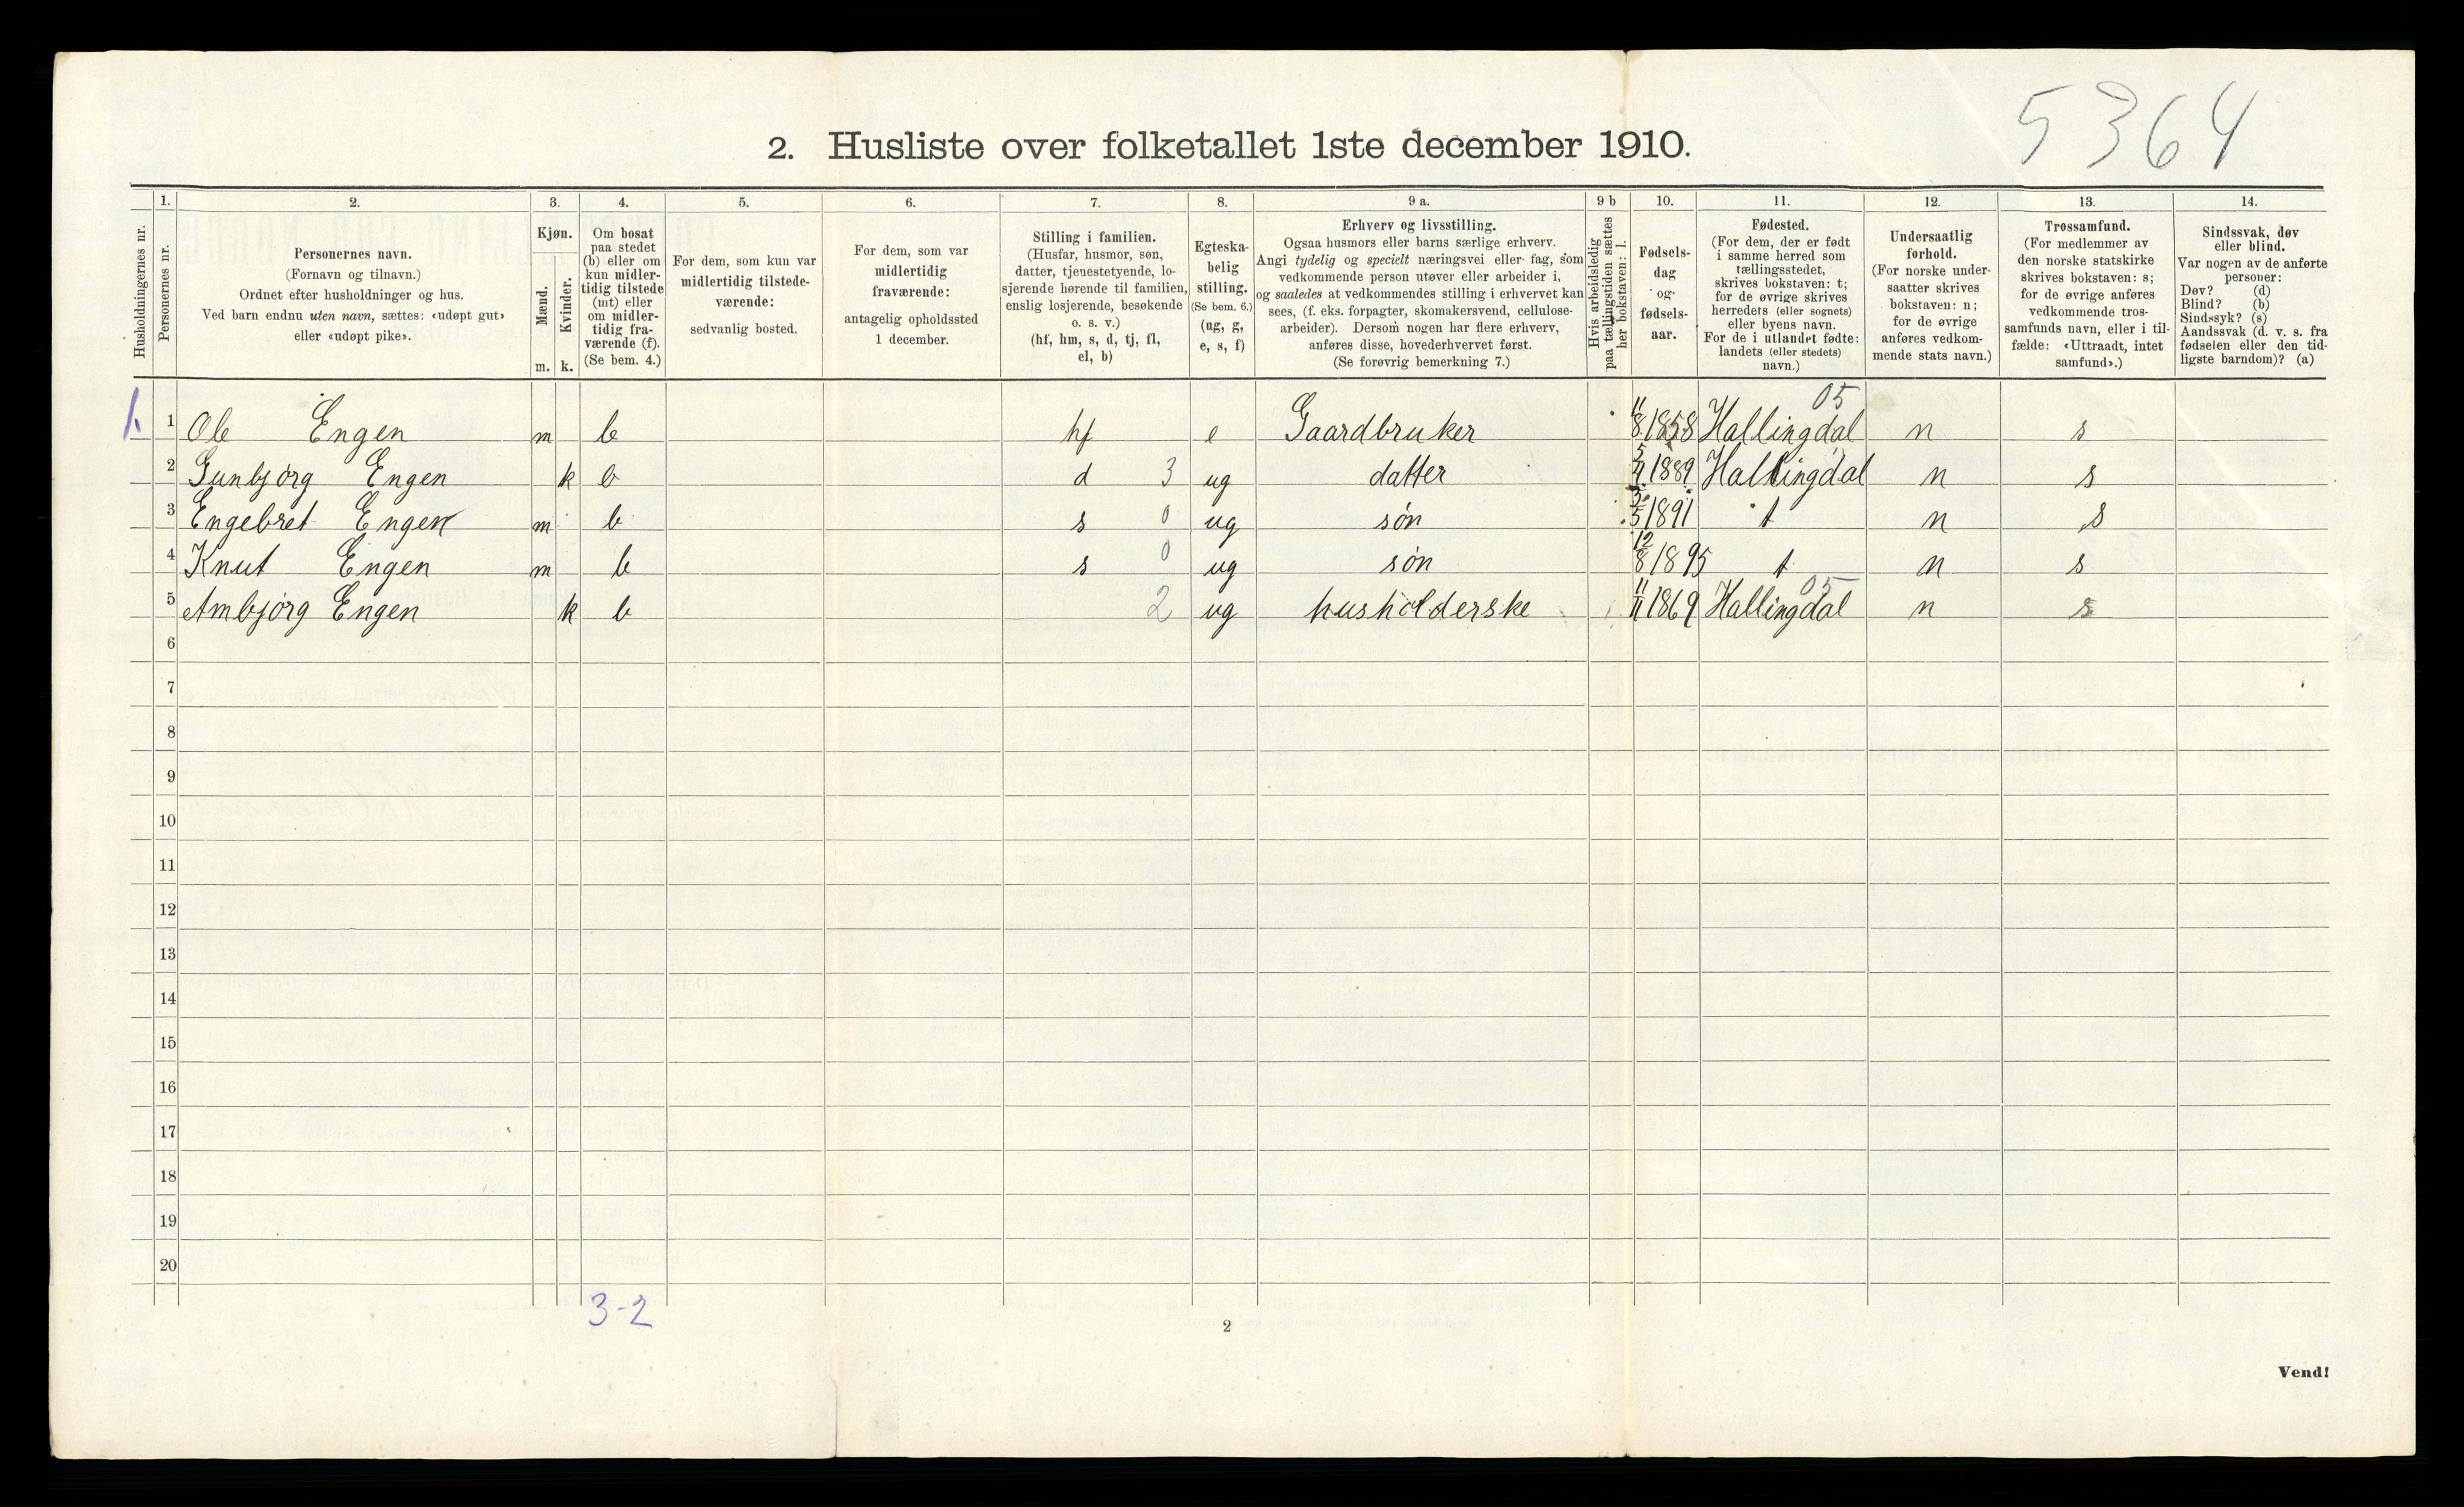 5364
2. Husliste over folketallet 1ste december 1910.
Husholdningernes nr.
1.
Personernes nr.
2.
Personernes navn.
(Fornavn og tilnavn.)
Ordnet efter husholdninger og hus.
Ved barn endnu uten navn, sættes: «udøpt gut»
eller «udøpt pike».
3.
Kjøn.
Mænd.
Kvinder.
m. k.
4.
Om bosat
paa stedet
(b) eller om
kun midler-
tidig tilstede
(mt) eller
om midler-
tidig fra-
værende (f).
(Se bem. 4.)
5.
For dem, som kun var
midlertidig tilstede-
værende:
sedvanlig bosted.
6.
For dem, som var
midlertidig
fraværende:
antagelig opholdssted
1 december.
7.
Stilling i familien.
(Husfar, husmor, søn,
datter, tjenestetyende, lo-
sjerende hørende til familien,
enslig losjerende, besøkende
o. s. v.)
(hf, hm, s, d, tj, fl,
el, b)
8.
Egteska-
belig
stilling.
(Se bem. 6.)
(ug, g,
e, s, f)
9 a.
Erhverv og livsstilling.
Ogsaa husmors eller barns særlige erhverv.
Angi tydelig og specielt næringsvei eller fag, som
vedkommende person utøver eller arbeider i,
og saaledes at vedkommendes stilling i erhvervet kan
sees, (f. eks. forpagter, skomakersvend, cellulose-
arbeider). Dersom nogen har flere erhverv,
anføres disse, hovederhvervet først.
(Se forøvrig bemerkning 7.)
9 b
Hvis arbeidsledig
paa tællingstiden sættes
her bokstaven: l.
10.
Fødsels-
dag
og
fødsels-
aar.
11.
Fødested.
(For dem, der er født
i samme herred som
tællingsstedet,
skrives bokstaven: t;
for de øvrige skrives
herredets (eller sognets)
eller byens navn.
For de i utlandet fødte:
landets (eller stedets)
navn.)
12.
Undersaatlig
forhold.
(For norske under-
saatter skrives
bokstaven: n;
for de øvrige
anføres vedkom-
mende stats navn.)
13.
Trossamfund.
(For medlemmer av
den norske statskirke
skrives bokstaven: s;
for de øvrige anføres
vedkommende tros-
samfunds navn, eller i til-
fælde: «Uttraadt, intet
samfund».)
14.
Sindssvak, døv
eller blind.
Var nogen av de anførte
personer:
Døv? (d)
Blind? (b)
Sindssyk? (s)
Aandssvak (d. v. s. fra
fødselen eller den tid-
ligste barndom)? (a)
05
1. 1 Ole Engen m b hf e Gaardbruker 11/8 1858 Hallingdal n s
2 Gunbjørg Engen k b d 3 ug datter 5/11 1889 Hallingdal n s
3 Engebret Engen m b s 0 ug søn 1891 t n s
4 Knut Engen m b s 0 ug søn 12/8 1895 t n s
05
5 Ambjørg Engen k b 2 ug husholderske 11/11 1869 Hallingdal n s
6
7
8
9
10
11
12
13
14
15
16
17
18
19
20
3-2
2
Vend!